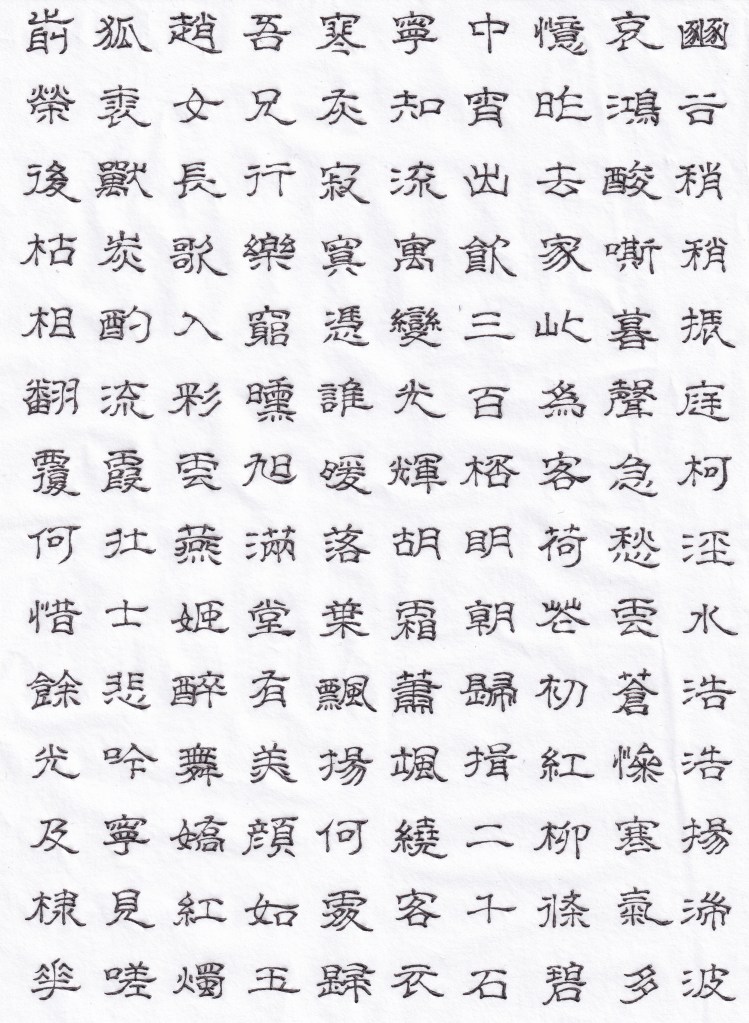 豳谷稍稍振庭柯涇水浩浩揚湍波
哀鴻酸嘶暮聲急愁雲蒼慘塞氣多
憶昨去家此為客荷花初紅柳條碧
中宵出飲三百桮明朝歸揖二千石
寧知流寓變光輝胡霜蕭颯繞客衣
寒灰寂寞憑誰暖落葉飄揚何處歸
吾兄行樂窮曛旭滿堂有美顏如玉
趙女長歌入彩雲燕姬醉舞嬌紅燭
狐裘獸炭酌流霞壯士悲吟寧見嗟
前榮後枯相翻覆何惜餘光及棣華